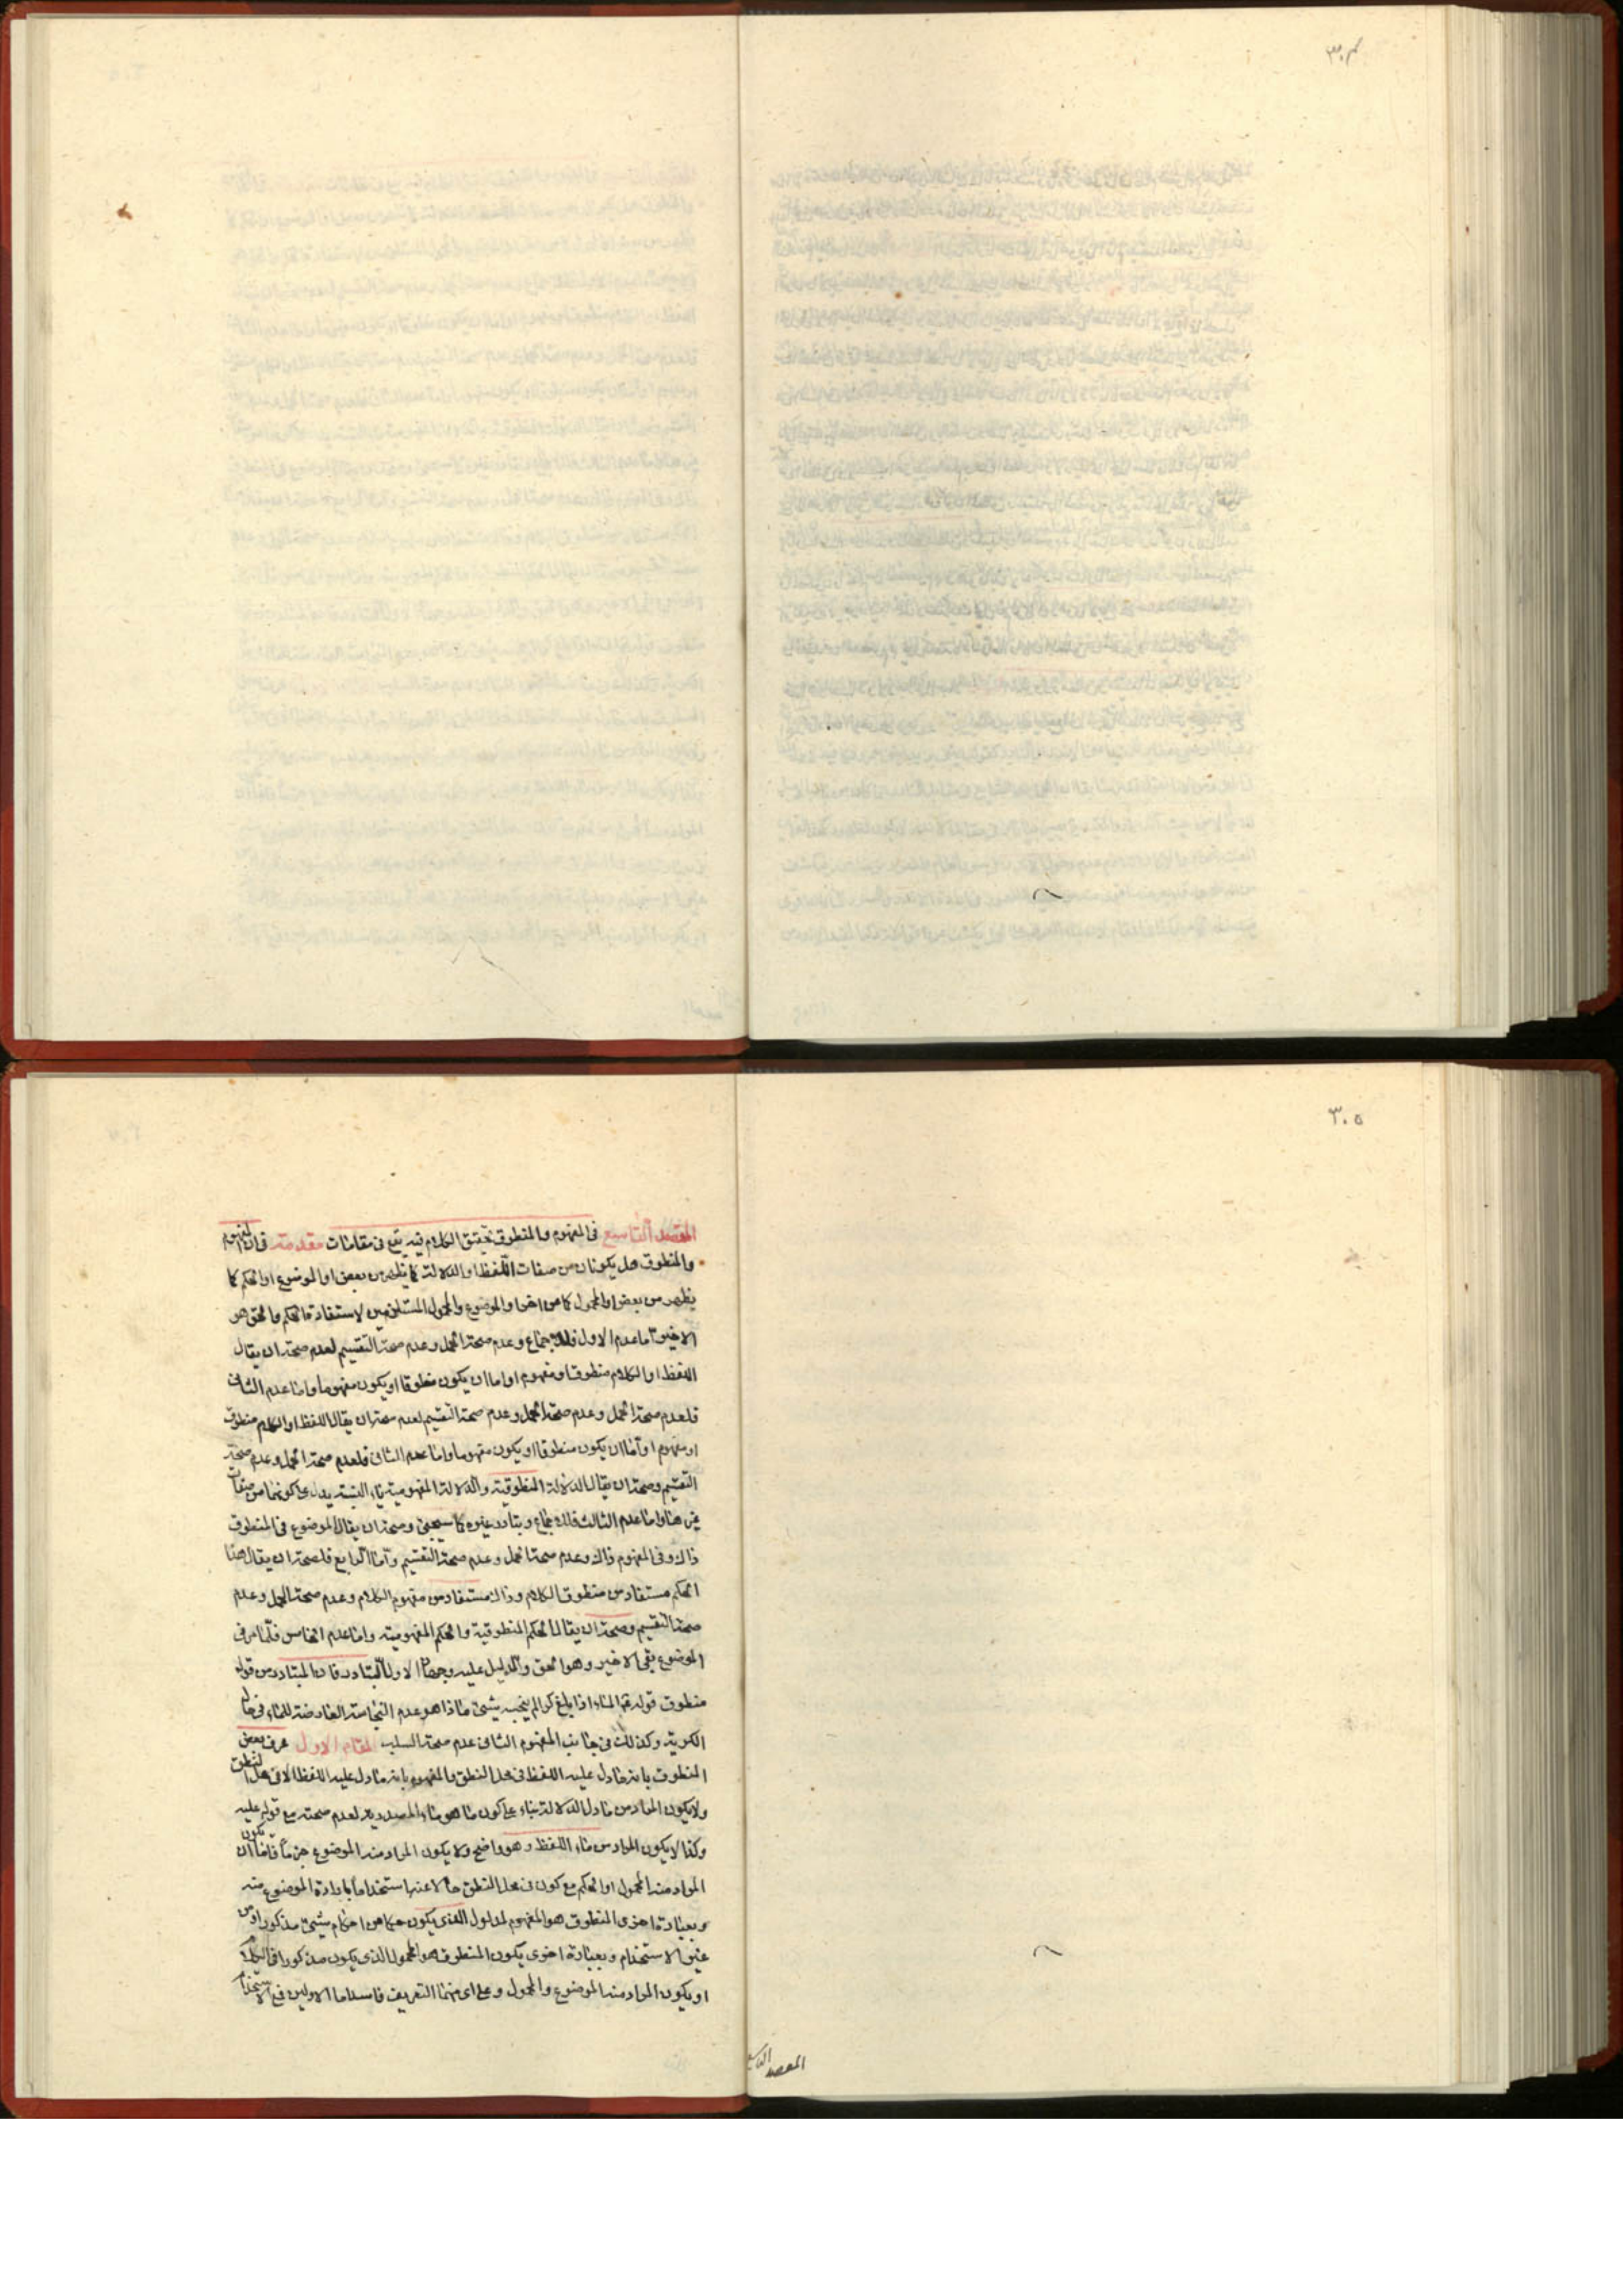 ٣٠٤
٣٠٥
المقصد التاسع فى المفهوم والمنطوق تحقيق الكلام فيه يقع فى مقامات مقدمة فى ان المفهوم
والمنطوق هل يكونان من صفات اللفظ او الدلالة كما يظهر من بعض او الموضوع او الحكم كما
يظهر من بعض او المحمول كما من اخر او الموضوع والمحمول المستلزمين لاستفادة الحكم والحق هو
الاخير اما عدم الاول فللاجماع وعدم صحة الحمل وعدم صحة التقسيم لعدم صحة ان يقال
اللفظ او الكلام منطوق او مفهوم او اما ان يكون منطوقا او يكون مفهوما واما عدم الثانى
فلعدم صحة الحمل وعدم صحة الحمل وعدم صحة التقسيم لعدم صحة ان يقال اللفظ او الكلام منطوق
او مفهوم او اما ان يكون منطوقا او يكون مفهوما واما عدم الثانى فلعدم صحة الحمل وعدم صحة
التقسيم وصحة ان يقال الدلالة المنطوقية والدلالة المفهومية ياء النسبة يدل على كونها من صفات
غيرهما واما عدم الثالث فللاجماع وتبادر غيره كما سيجئ وصحة ان يقال الموضوع فى المنطوق
ذاك وفى المفهوم ذاك وعدم صحة الحمل وعدم صحة التقسيم واما الرابع فلصحة ان يقال هذا
الحكم مستفاد من منطوق الكلام وذاك مستفاد من مفهوم الكلام وعدم صحة الحمل وعدم
صحة التقسيم وصحة ان يقال الحكم المنطوقية والحكم المفهومية واما عدم الخامس فلما مر فى
الموضوع بقى الاخير وهو الحق والدليل عليه وجهان الاول التبادر فان المتبادر من قوله
منطوق قوله الماء اذا بلغ كرا لم ينجسه شئ ماذا هو عدم النجاسة العارضة للماء فى حال
الكرية وكذلك فى جانب المفهوم الثانى عدم صحة السلب المقام الاول عرف بعض
المنطوق بانه ما دل عليه اللفظ فى محل النطق والمفهوم بانه ما دل عليه اللفظ لا فى محل النطق
ولا يكون المراد من ما دل الدلالة بناء على كون ما هو ماء المصدرية لعدم صحته مع قوله عليه
وكذا لا يكون المراد من ماء اللفظ وهو واضح ولا يكون المراد منه الموضوع جزما فاما ان يكون
المراد منه المحمول او الحكم مع كون فى محل النطق حالا عنها استخداما بارادة الموضوع منه
وبعبارة اخرى المنطوق هو المفهوم المدلول الذى يكون حكما من احكام شئ مذكورا ومن
غير الاستخدام وبعبارة اخرى يكون المنطوق هو المحمول الذى يكون مذكورا فى الكلام
او يكون المراد منه الموضوع والمحمول وعلى اى منهما التعريف فاسد اما الاولين فمع الاستخدام
المقصد التاسع